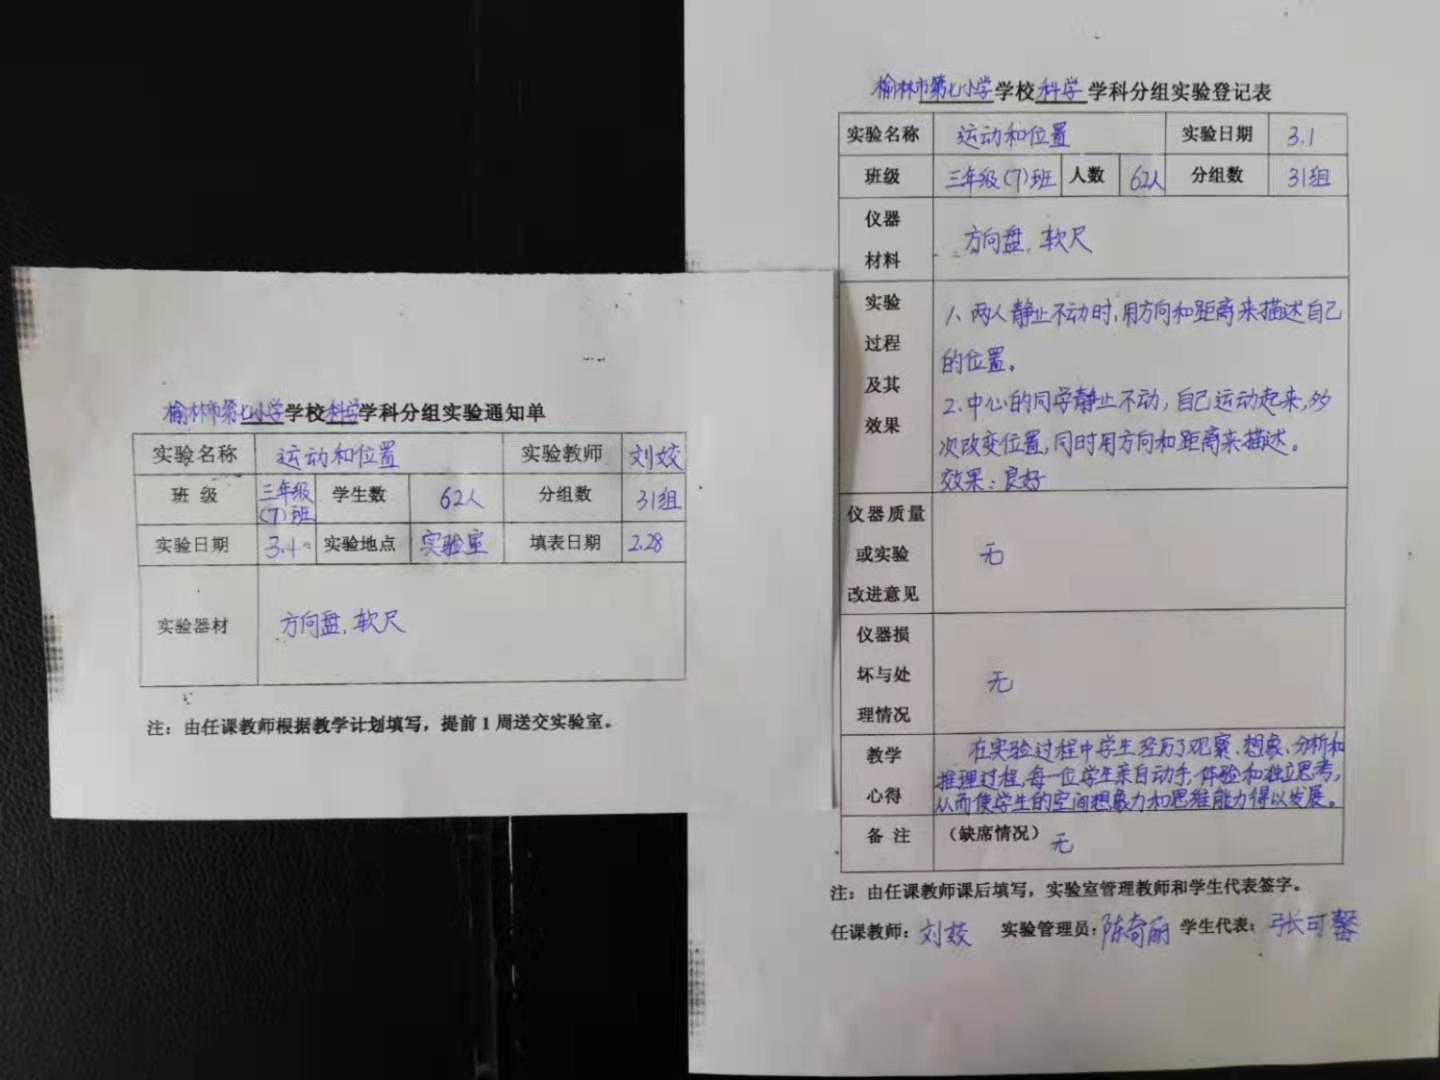 榆林市第七小学学校科学学科分组实验通知单
实验名称 运动和位置 实验教师 刘姣
班 级 三年级(7)班 学生数 62人 分组数 31组
实验日期 3.1 实验地点 实验室 填表日期 2.28
实验器材 方向盘,软尺
注：由任课教师根据教学计划填写，提前1周送交实验室。
榆林市第七小学学校科学学科分组实验登记表
实验名称 运动和位置 实验日期 3.1
班级 三年级(7)班 人数 62人 分组数 31组
仪器材料 方向盘,软尺
实验过程及其效果
1、两人静止不动时,用方向和距离来描述自己
的位置。
2.中心的同学静止不动,自己运动起来,多
次改变位置,同时用方向和距离来描述。
效果:良好
仪器质量或实验改进意见 无
仪器损坏与处理情况 无
教学心得
在实验过程中学生经历了观察、想象、分析和
推理过程,每一位学生亲自动手,体验和独立思考,
从而使学生的空间想象力和思维能力得以发展。
备 注 （缺席情况） 无
注：由任课教师课后填写，实验室管理教师和学生代表签字。
任课教师：刘姣 实验管理员：陈奇丽 学生代表：张可馨